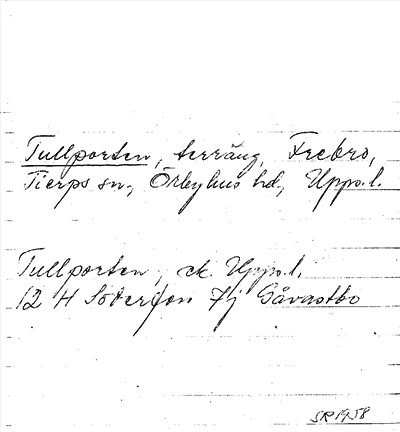 Tullporten, terräng, Frebro,
Tierps sn., Örbyhus hd., Upps.l.
Tullporten, ek. Upps.l.
12 H Söderfors 7j Gåvastbo
SR 1958